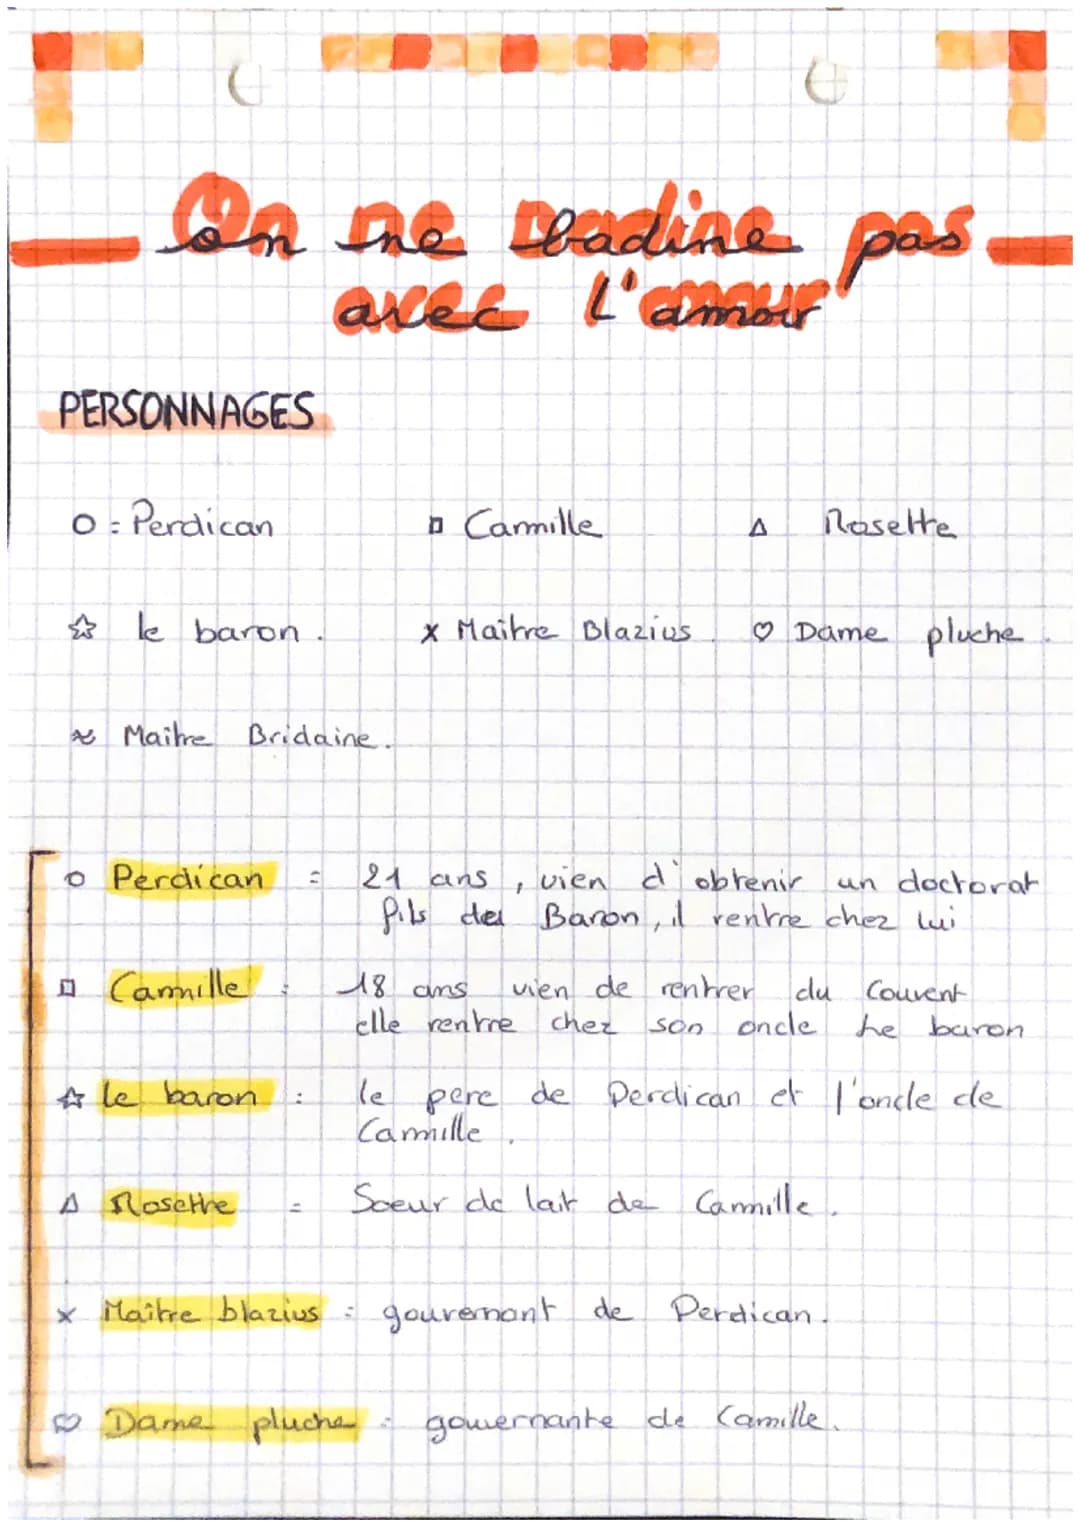 On ne badine pas
avec l'amour
PERSONNAGES
O = Perdican □ Camille △ Rosette
☆ le baron. x Maître Blazius. ♡ Dame pluche.
≈ Maître Bridaine.
o Perdican = 21 ans, vien d'obtenir un doctorat
fils du Baron, il rentre chez lui
□ Camille : 18 ans vien de rentrer du Couvent
elle rentre chez son oncle le baron
☆ le baron : le pere de Perdican et l'oncle de
Camille.
△ Rosette = Soeur de lait de Camille.
x Maître blazius : gouvernant de Perdican.
♡ Dame pluche : gouvernante de Camille.